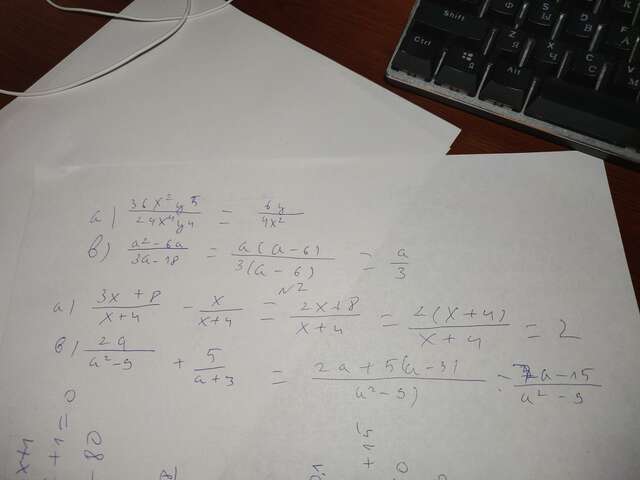 Shift
Ctrl
Alt
Я
Ч
С
Ф
Ы
В
а) 36x²y⁵/24x⁴y⁴ = 6y/4x²
в) a²-6a/3a-18 = a(a-6)/3(a-6) = a/3
№2
а) 3x+8/x+4 - x/x+4 = 2x+8/x+4 = 2(x+4)/x+4 = 2
в) 2a/a²-9 + 5/a+3 = 2a+5(a-3)/a²-9) = 7a-15/a²-9
x+1
+1=0
-80